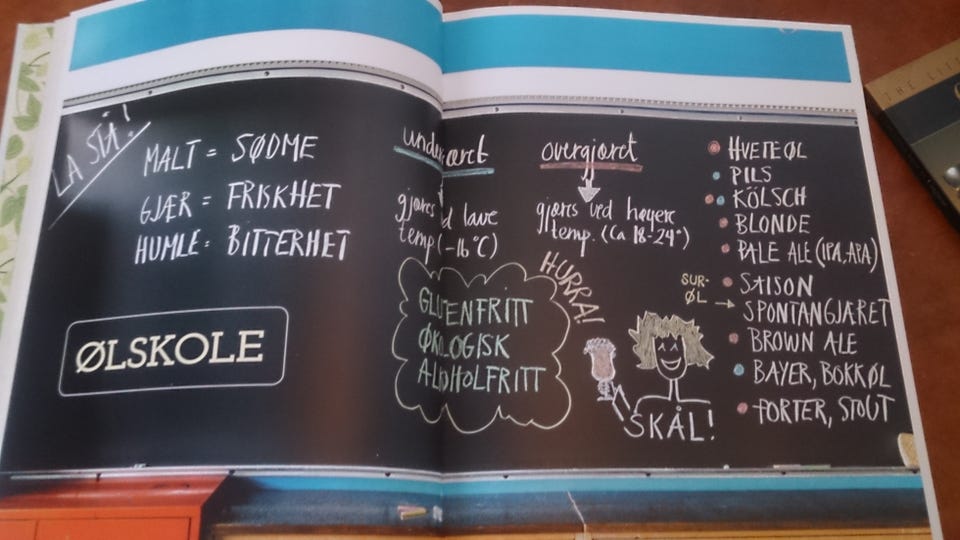 LA STÅ!
MALT = SØDME
GJÆR = FRISKHET
HUMLE = BITTERHET
ØLSKOLE
under æret
gjæres d lave
temp. (-16°C)
GLUTENFRITT
ØKOLOGISK
ALKOHOLFRITT
overgjæret
gjæres ved høyere
temp. (Ca 18-24°)
HURRA!
SKÅL!
HVETEØL
PILS
KÖLSCH
BLONDE
PALE ALE (IPA, APA)
SAISON
SUR-
ØL → SPONTANGJÆRET
BROWN ALE
BAYER, BOKKØL
PORTER, STOUT